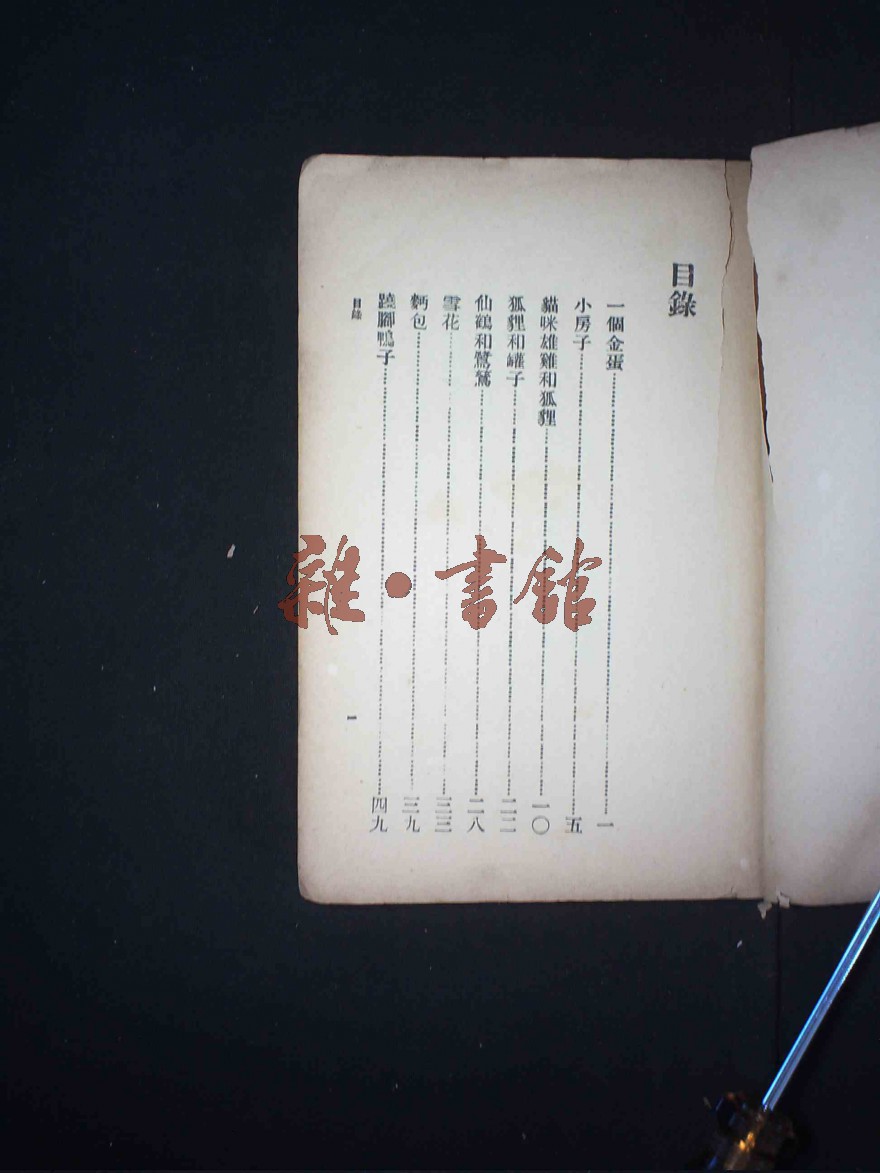 目錄
一個金蛋……一
小房子……五
貓咪雄雞和狐狸……一〇
狐狸和罐子……二二
仙鶴和鷺鷥……二八
雪花……三三
麪包……三九
蹺腳鴨子……四九
目錄
一
雜·書館